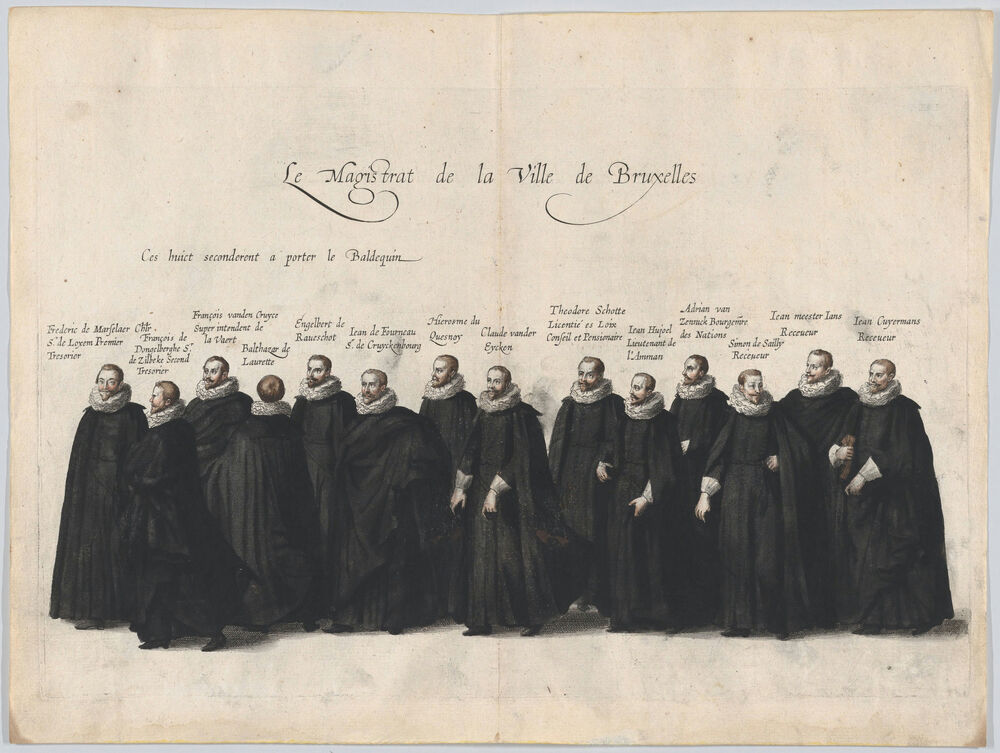 Le Magistrat de la Ville de Bruxelles
Ces huict seconderent a porter le Baldequin
Frederic de Marselaer
Sr. de Loxem Premier
Tresorier
Chlr.
François de
Dongelberghe Sr.
de Zilbeke Second
Tresorier
François vanden Cruyce
Super intendent de
la Vaert
Balthazar de
Laurette
Engelbert de
Raueschot
Iean de Fourneau
Sr. de Cruyckenbourg
Hierosme du
Quesnoy
Claude vander
Eycken
Theodore Schotte
Licentié es Loix
Conseil et Pensionaire
Iean Huioel
Lieutenant de
l'Amman
Adrian van
Zennick Bourgemre.
des Nations
Simon de Sailly
Receueur
Iean meester Ians
Receueur
Iean Cuyermans
Receueur